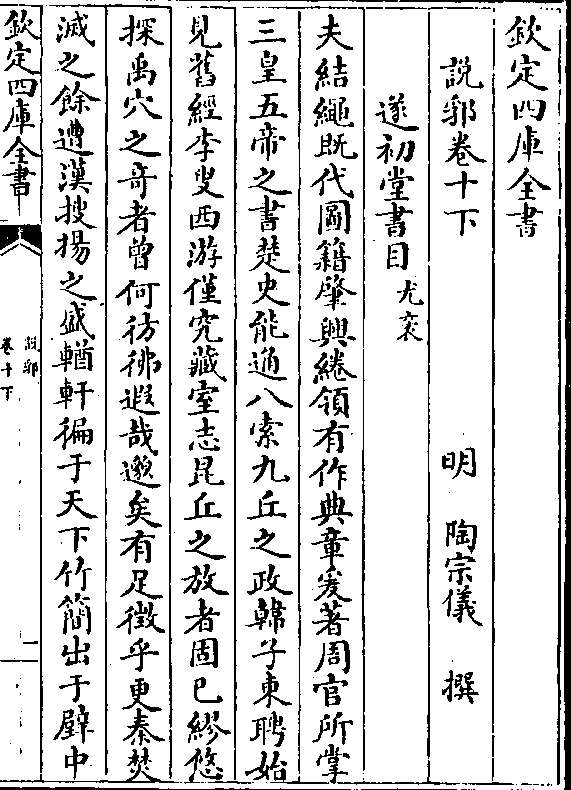 欽定四庫全書
說郛卷十下
明 陶宗儀 撰
遂初堂書目 尤袤
夫結繩既代圖籍肇興綣領有作典章爰著周官所掌
三皇五帝之書楚史能通八索九丘之政韓子東聘始
見舊經李叟西游僅究藏室志昆丘之放者固已繆悠
探禹穴之奇者曾何彷彿遐哉邈矣有足徵乎更秦焚
滅之餘遭漢搜揚之盛輶軒徧于天下竹簡出于壁中
欽定四庫全書
說郛
卷十下
一